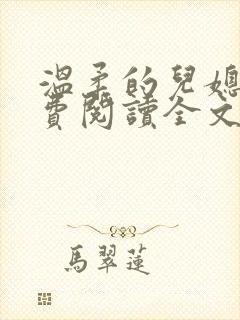 溫柔的兒媳
費閱讀全文
馬翠蓮